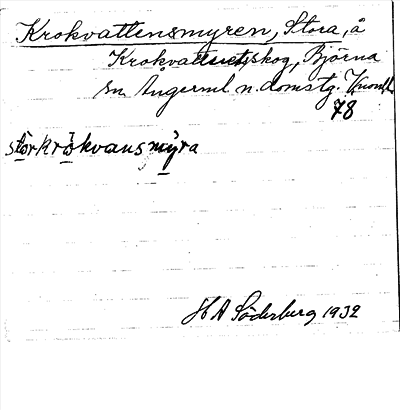 Krokvattensmyren, Stora, å
Krokvattnets skog, Björna
sn Ångerml n. domstg.
78
störkrökvansmýra
H A Söderberg 1932